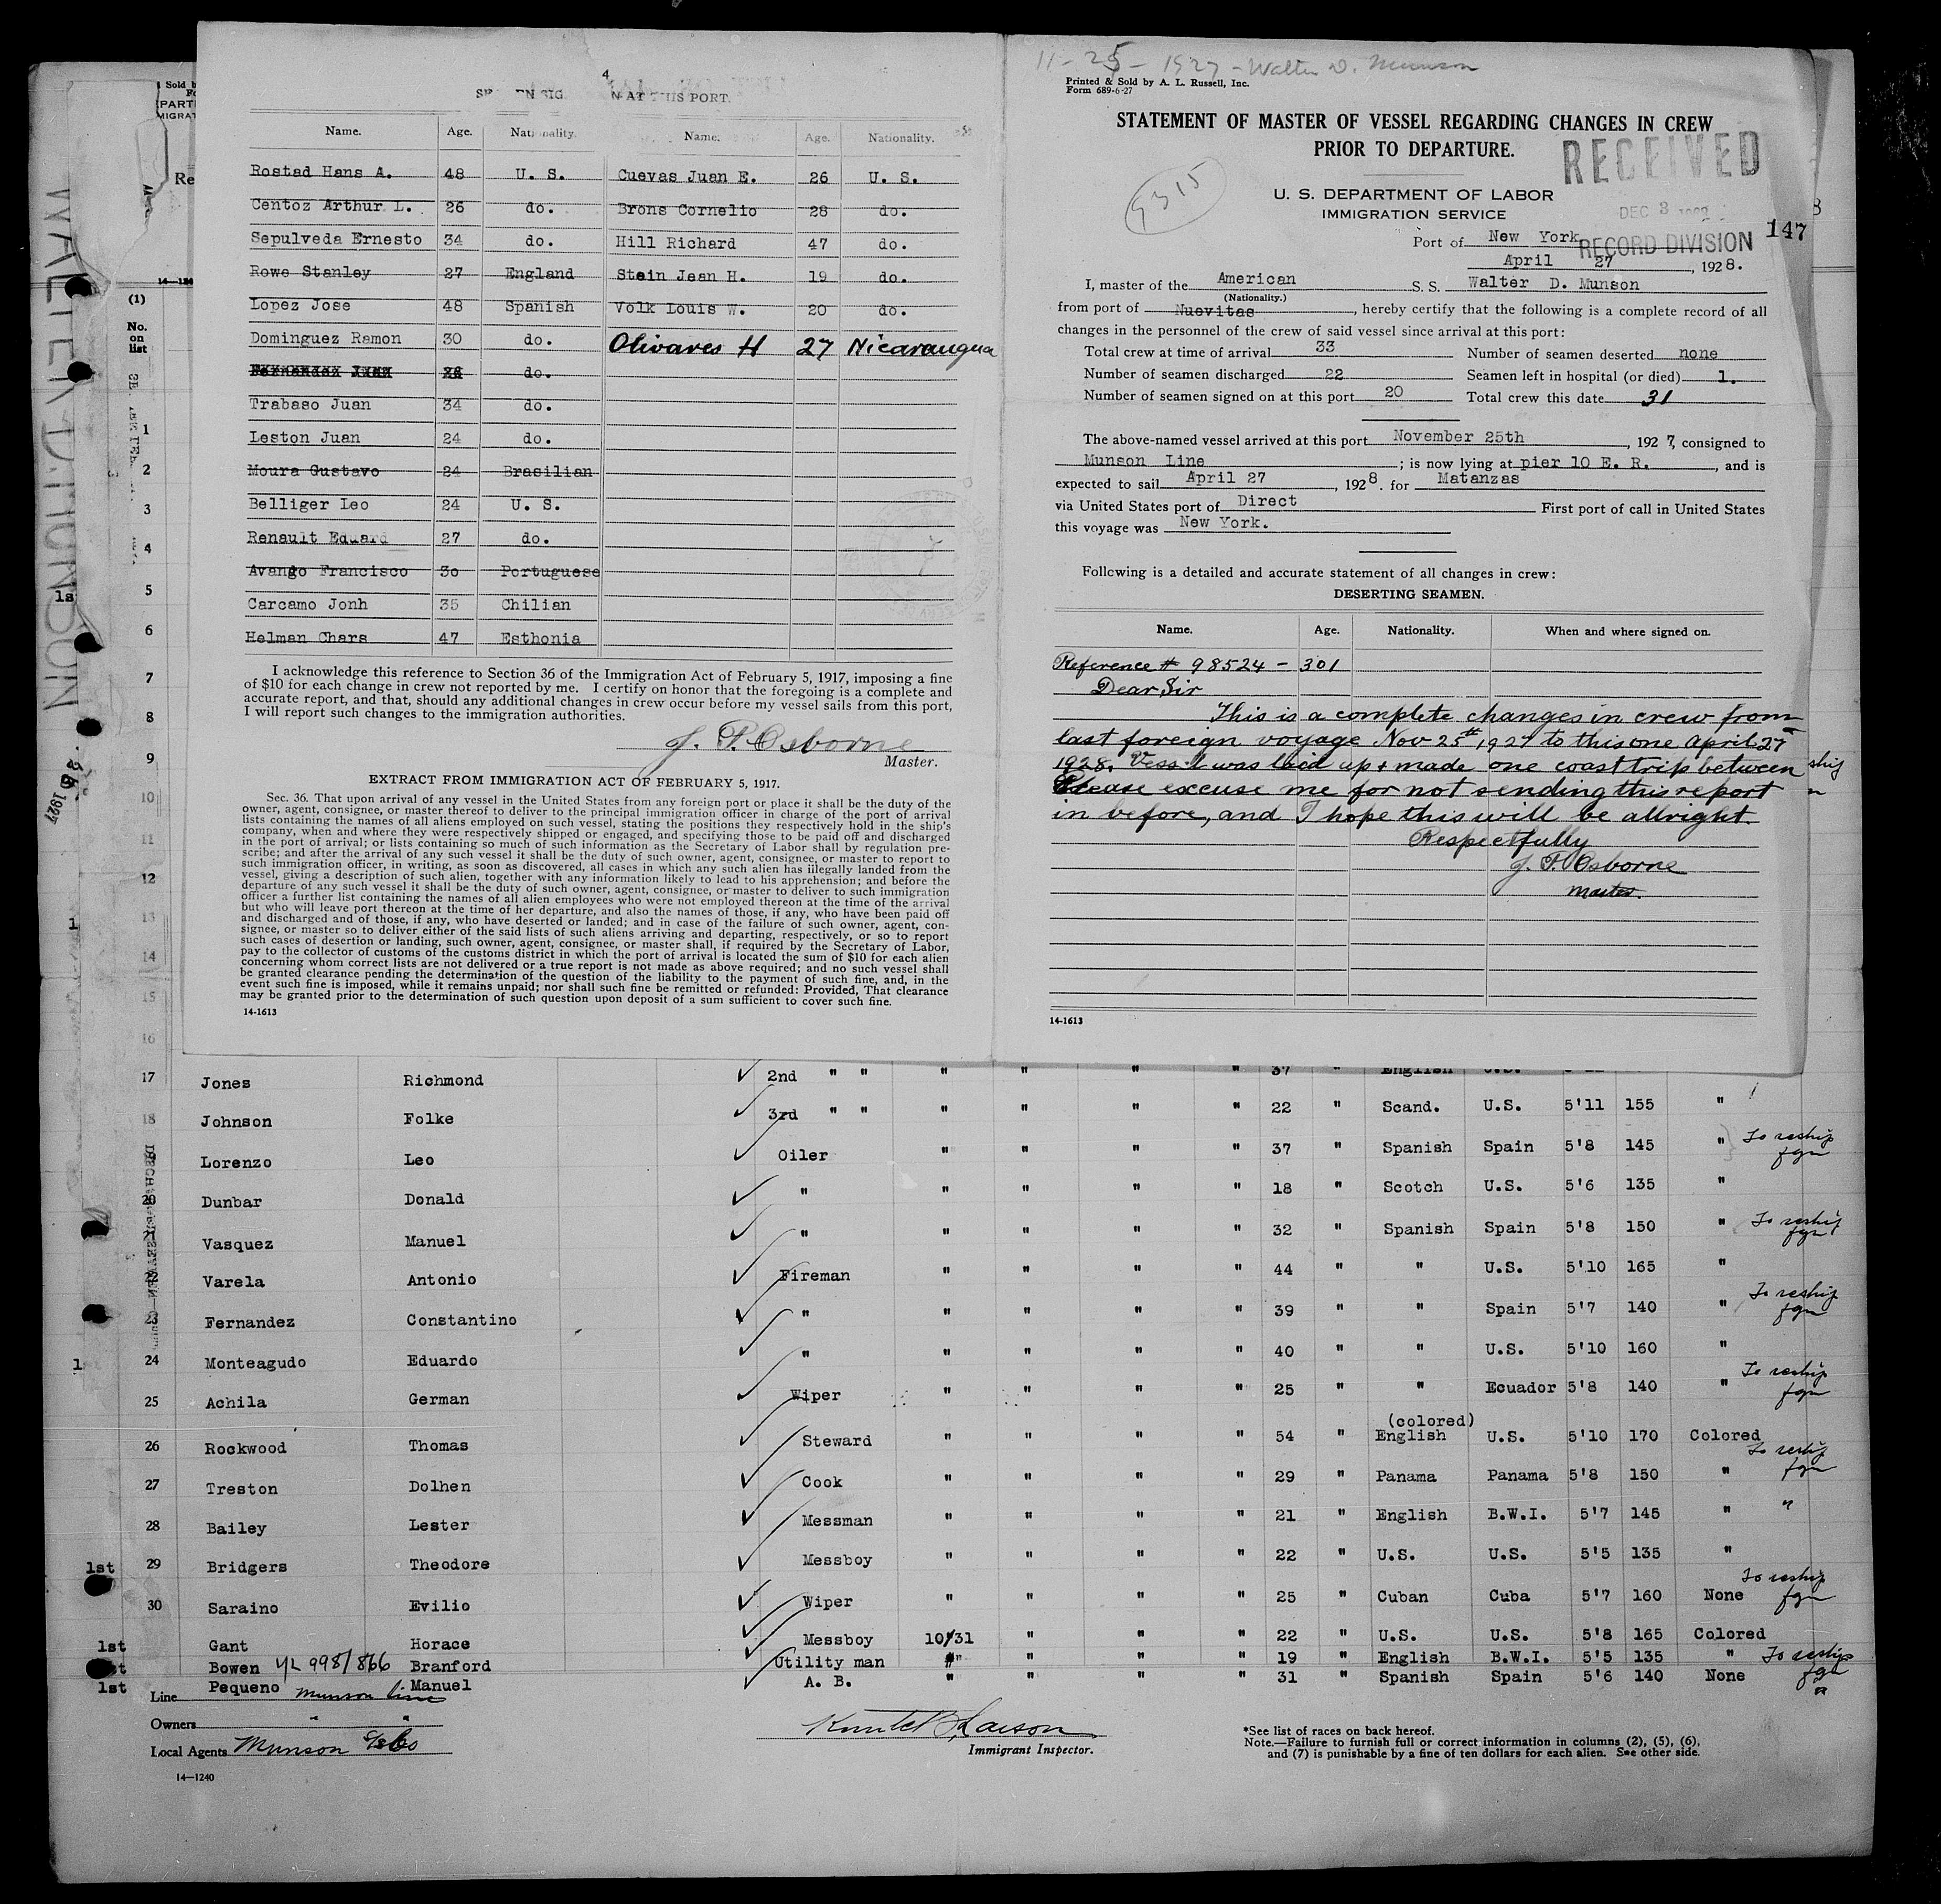 4
AT THIS PORT.
Name. Age. Nationality. Name. Age. Nationality.
Rostad Hans A. 48 U. S. Cuevas Juan E. 26 U. S.
Centoz Arthur L. 26 do. Brons Cornelio 28 do.
Sepulveda Ernesto 34 do. Hill Richard 47 do.
Rowe Stanley 27 England Stein Jean H. 19 do.
Lopez Jose 48 Spanish Volk Louis W. 20 do.
Dominguez Ramon 30 do. Olivares H 27 Nicaraugua
do.
Trabaso Juan 34 do.
Leston Juan 24 do.
Moura Gustavo 24 Brasilian
Belliger Leo 24 U. S.
Renault Eduard 27 do.
Avango Francisco 30 Portuguese
Carcamo Jonh 35 Chilian
Helman Chars 47 Esthonia
I acknowledge this reference to Section 36 of the Immigration Act of February 5, 1917, imposing a fine
of $10 for each change in crew not reported by me. I certify on honor that the foregoing is a complete and
accurate report, and that, should any additional changes in crew occur before my vessel sails from this port,
I will report such changes to the immigration authorities.
J. P. Osborne
Master.
EXTRACT FROM IMMIGRATION ACT OF FEBRUARY 5, 1917.
Sec. 36. That upon arrival of any vessel in the United States from any foreign port or place it shall be the duty of the
owner, agent, consignee, or master thereof to deliver to the principal immigration officer in charge of the port of arrival
lists containing the names of all aliens employed on such vessel, stating the positions they respectively hold in the ship's
company, when and where they were respectively shipped or engaged, and specifying those to be paid off and discharged
in the port of arrival; or lists containing so much of such information as the Secretary of Labor shall by regulation pre-
scribe; and after the arrival of any such vessel it shall be the duty of such owner, agent, consignee, or master to report to
such immigration officer, in writing, as soon as discovered, all cases in which any such alien has illegally landed from the
vessel, giving a description of such alien, together with any information likely to lead to his apprehension; and before the
departure of any such vessel it shall be the duty of such owner, agent, consignee, or master to deliver to such immigration
officer a further list containing the names of all alien employees who were not employed thereon at the time of the arrival
but who will leave port thereon at the time of her departure, and also the names of those, if any, who have been paid off
and discharged and of those, if any, who have deserted or landed; and in case of the failure of such owner, agent, con-
signee, or master so to deliver either of the said lists of such aliens arriving and departing, respectively, or so to report
such cases of desertion or landing, such owner, agent, consignee, or master shall, if required by the Secretary of Labor,
pay to the collector of customs of the customs district in which the port of arrival is located the sum of $10 for each alien
concerning whom correct lists are not delivered or a true report is not made as above required; and no such vessel shall
be granted clearance pending the determination of the question of the liability to the payment of such fine, and, in the
event such fine is imposed, while it remains unpaid; nor shall such fine be remitted or refunded: Provided, That clearance
may be granted prior to the determination of such question upon deposit of a sum sufficient to cover such fine.
14-1613
11-25-1927-Walter D. Munson
Printed & Sold by A. L. Russell, Inc.
Form 689-6-27
STATEMENT OF MASTER OF VESSEL REGARDING CHANGES IN CREW
PRIOR TO DEPARTURE.
RECEIVED
9315
U. S. DEPARTMENT OF LABOR
IMMIGRATION SERVICE
DEC 3
147
Port of New York
RECORD DIVISION
April 27, 1928.
I, master of the American S. S. Walter D. Munson
(Nationality.)
from port of Nuevitas, hereby certify that the following is a complete record of all
changes in the personnel of the crew of said vessel since arrival at this port:
Total crew at time of arrival 33 Number of seamen deserted none
Number of seamen discharged 22 Seamen left in hospital (or died) 1.
Number of seamen signed on at this port 20 Total crew this date 31
The above-named vessel arrived at this port November 25th, 1927, consigned to
Munson Line; is now lying at pier 10 E. R., and is
expected to sail April 27, 1928. for Matanzas
via United States port of Direct First port of call in United States
this voyage was New York.
Following is a detailed and accurate statement of all changes in crew:
DESERTING SEAMEN.
Name. Age. Nationality. When and where signed on.
Reference # 98524-301
Dear Sir
This is a complete changes in crew from
last foreign voyage Nov 25th 1927 to this one April 27
1928. Vessel was laid up + made one coast trip between
Please excuse me for not sending this report
in before, and I hope this will be allright.
Respectfully
J. P. Osborne
Master.
14-1613
WALTER D. MUNSON
(1)
No.
on
list
1
2
3
4
5
6
7
8
9
10
11
12
13
14
15
16
17 Jones Richmond 2nd " " " " " " 37 " English U.S.
18 Johnson Folke 3rd " " " " " " 22 " Scand. U.S. 5'11 155 "
Lorenzo Leo Oiler " " " " 37 " Spanish Spain 5'8 145 " To reship fgn
20 Dunbar Donald " " " " " 18 " Scotch U.S. 5'6 135 "
21 Vasquez Manuel " " " " " 32 " Spanish Spain 5'8 150 " To reship fgn
22 Varela Antonio Fireman " " " " 44 " " U.S. 5'10 165 "
23 Fernandez Constantino " " " " " 39 " " Spain 5'7 140 " To reship fgn
24 Monteagudo Eduardo " " " " " 40 " " U.S. 5'10 160 "
25 Achila German Wiper " " " " 25 " " Ecuador 5'8 140 " To reship fgn
26 Rockwood Thomas Steward " " " " 54 " (colored) English U.S. 5'10 170 Colored
27 Treston Dolhen Cook " " " " 29 " Panama Panama 5'8 150 " To reship fgn
28 Bailey Lester Messman " " " " 21 " English B.W.I. 5'7 145 " "
1st 29 Bridgers Theodore Messboy " " " " 22 " U.S. U.S. 5'5 135 "
30 Saraino Evilio Wiper " " " " 25 " Cuban Cuba 5'7 160 None To reship fgn
1st Gant Horace Messboy 10/31 " " " 22 " U.S. U.S. 5'8 165 Colored
Bowen 4L 998/866 Branford Utility man " " " " 19 " English B.W.I. 5'5 135 " To reship fgn
1st Pequeno Manuel A. B. " " " " 31 " Spanish Spain 5'6 140 None "
Line Munson Line
Owners " "
Local Agents Munson
Immigrant Inspector.
*See list of races on back hereof.
Note.—Failure to furnish full or correct information in columns (2), (5), (6),
and (7) is punishable by a fine of ten dollars for each alien. See other side.
14—1240